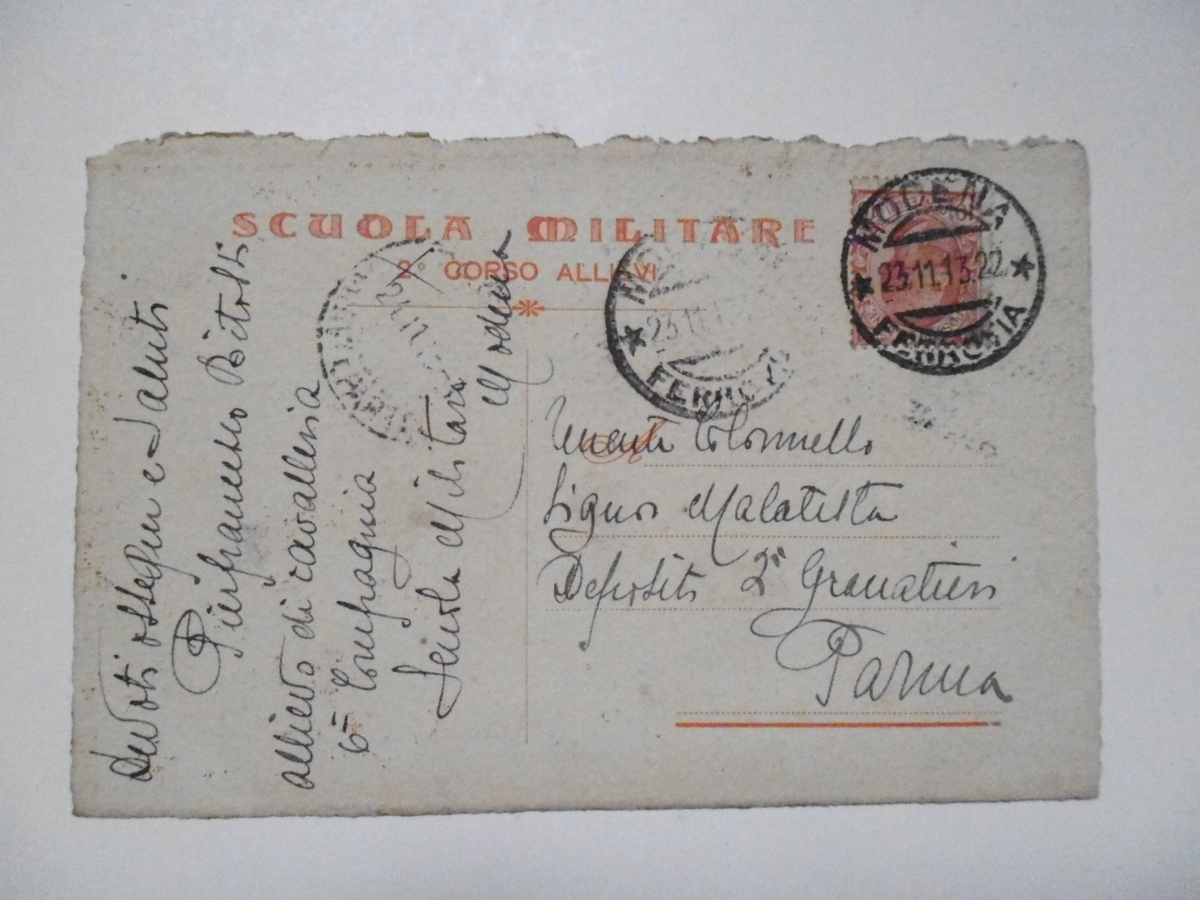 SCUOLA MILITARE
2º CORSO ALLIEVI
MODENA
23.11.13.22
FERROVIA
23.11
FERROVIA
Devoti ossequi e Saluti
Pierfrancesco
allievo di cavalleria
6ª Compagnia
Scuola Militare
Modena
Tenente Colonnello
Signor Malatesta
Deposito 2º Granatieri
Parma